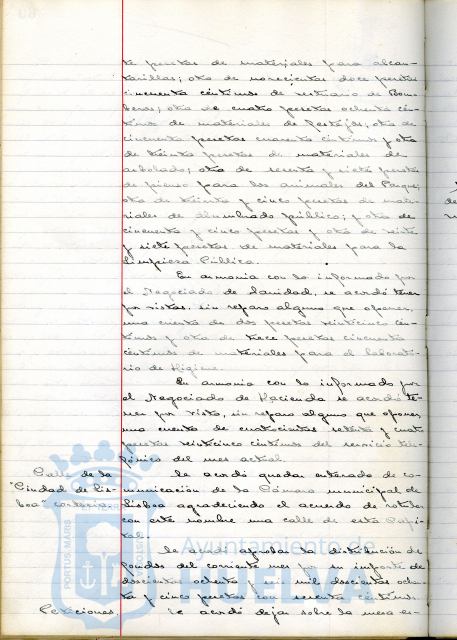 te pesetas de materiales para alcan-
tarillas; otra de novecientas doce pesetas
cincuenta céntimos de vestuario de Bom-
beros; otra de cuatro pesetas ochenta cén-
timos de materiales de Festejos; otra de
cincuenta pesetas cuarenta céntimos y otra
de treinta pesetas de materiales de
arbolado; otra de sesenta y siete pesetas
de pienso para los animales del Parque;
otra de treinta y cinco pesetas de mate-
riales de alumbrado público; y otra de
cincuenta y cinco pesetas y otra de veinte
y siete pesetas de materiales para la
Limpieza Pública.
En armonia con lo informado por
el Negociado de Sanidad, se acordó tener
por vistas, sin reparo alguno que oponer,
una cuenta de dos pesetas veinticinco cén-
timos y otra de trece pesetas cincuenta
céntimos de materiales para el laborato-
rio de Higiene.
En armonia con lo informado por
el Negociado de Hacienda se acordó te-
ner por visto, sin reparo alguno que oponer,
una cuenta de cuatrocientas setenta y cuatro
pesetas veinticinco céntimos del servicio tele-
fónico del mes actual.
Calle de la
"Ciudad de Lis-
boa"
Se acordó quedar enterado de co-
municación de la Cámara municipal de
Lisboa agradeciendo el acuerdo de rotular
con este nombre una calle de esta Capi-
tal.
Se acordó aprobar la distribución de
fondos del corriente mes por su importe de
doscientas ochenta y seis mil doscientas ochen-
ta y cinco pesetas con sesenta céntimos.
Peticiones.
Se acordó dejar sobre la mesa es-
Ayuntamiento de
HUELVA
PORTUS MARIS